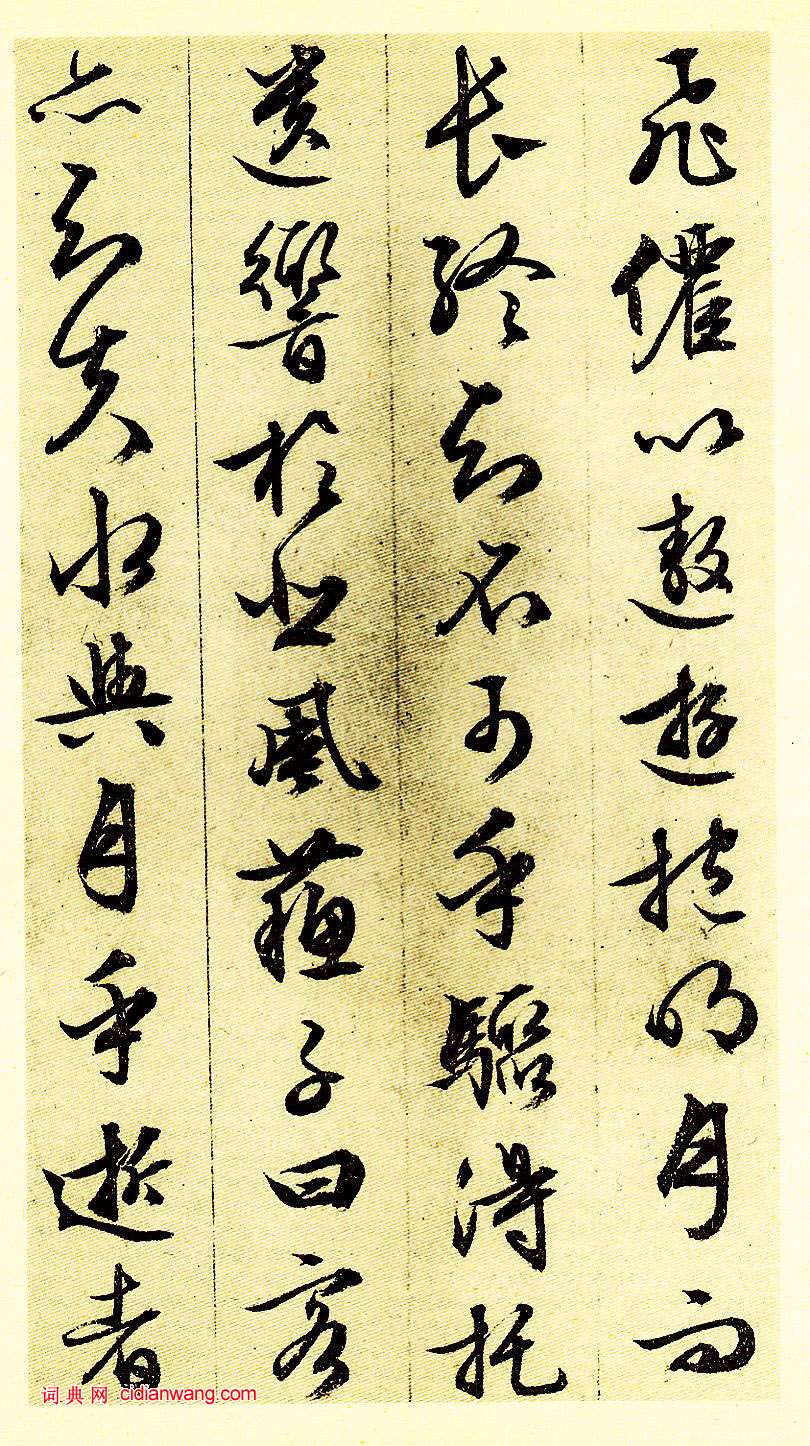 飛僊以遨遊挹明月而
長終知不可乎驟得托
遺響於悲風蘓子曰客
亦知夫水與月乎逝者
词典网 cidianwang.com